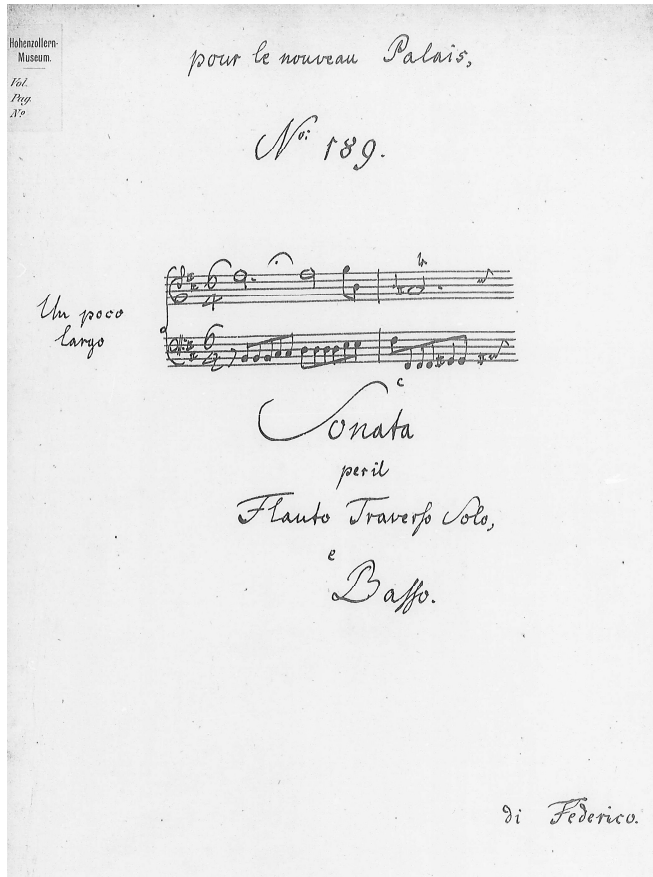 Hohenzollern-
Museum.
Vol.
Pag.
No
pour le nouveau Palais,
No: 189.
Un poco
largo
Sonata
per il
Flauto Traverso Solo,
e
Basso.
di Federico.